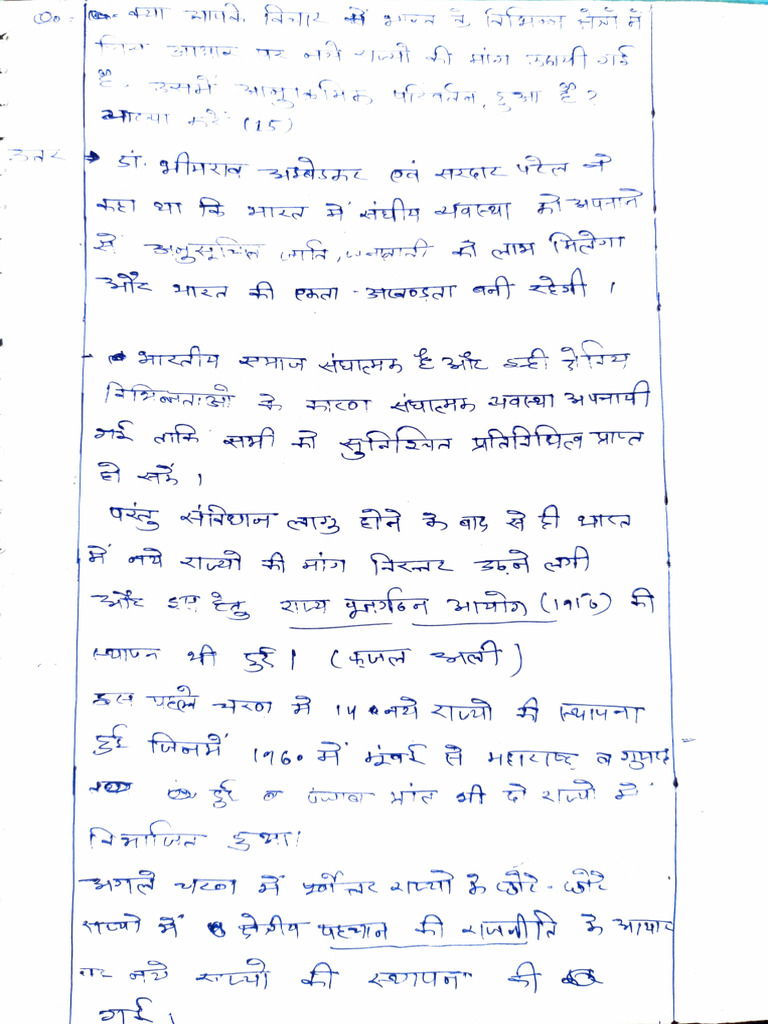 क्या आपके विचार में भारत के विभिन्न क्षेत्रों में
जिस आधार पर नये राज्यों की मांग उठायी गई
है, उसमें आनुक्रमिक परिवर्तन हुआ है?
व्याख्या करें (15)
उत्तर → डॉ. भीमराव अम्बेडकर एवं सरदार पटेल ने
कहा था कि भारत में संघीय व्यवस्था को अपनाने
से अनुसूचित जाति, जनजाति को लाभ मिलेगा
और भारत की एकता - अखण्डता बनी रहेगी ।
- भारतीय समाज संघात्मक है और इन्ही
विभिन्नताओ के कारण संघात्मक व्यवस्था अपनायी
गई ताकि सभी को सुनिश्चित प्रतिनिधित्व प्राप्त
हो सके ।
परंतु संविधान लागु होने के बाद से ही भारत
में नये राज्यो की मांग निरन्तर उठने लगी
और इस हेतु राज्य पुनर्गठन आयोग (1956) की
स्थापना भी हुई । (फजल अली)
इस पहले चरण मे 14 नये राज्यो की स्थापना
हुई जिनमें 1960 में मुंबई से महाराष्ट्र व गुजरात
हुई पंजाब प्रांत भी दो राज्यो में
विभाजित हुआ ।
अगले चरण में पूर्वोत्तर राज्यो के छोटे - छोटे
राज्यो में क्षेत्रीय पहचान की राजनीति के आधार
पर नये राज्यो की स्थापना की
गई ।